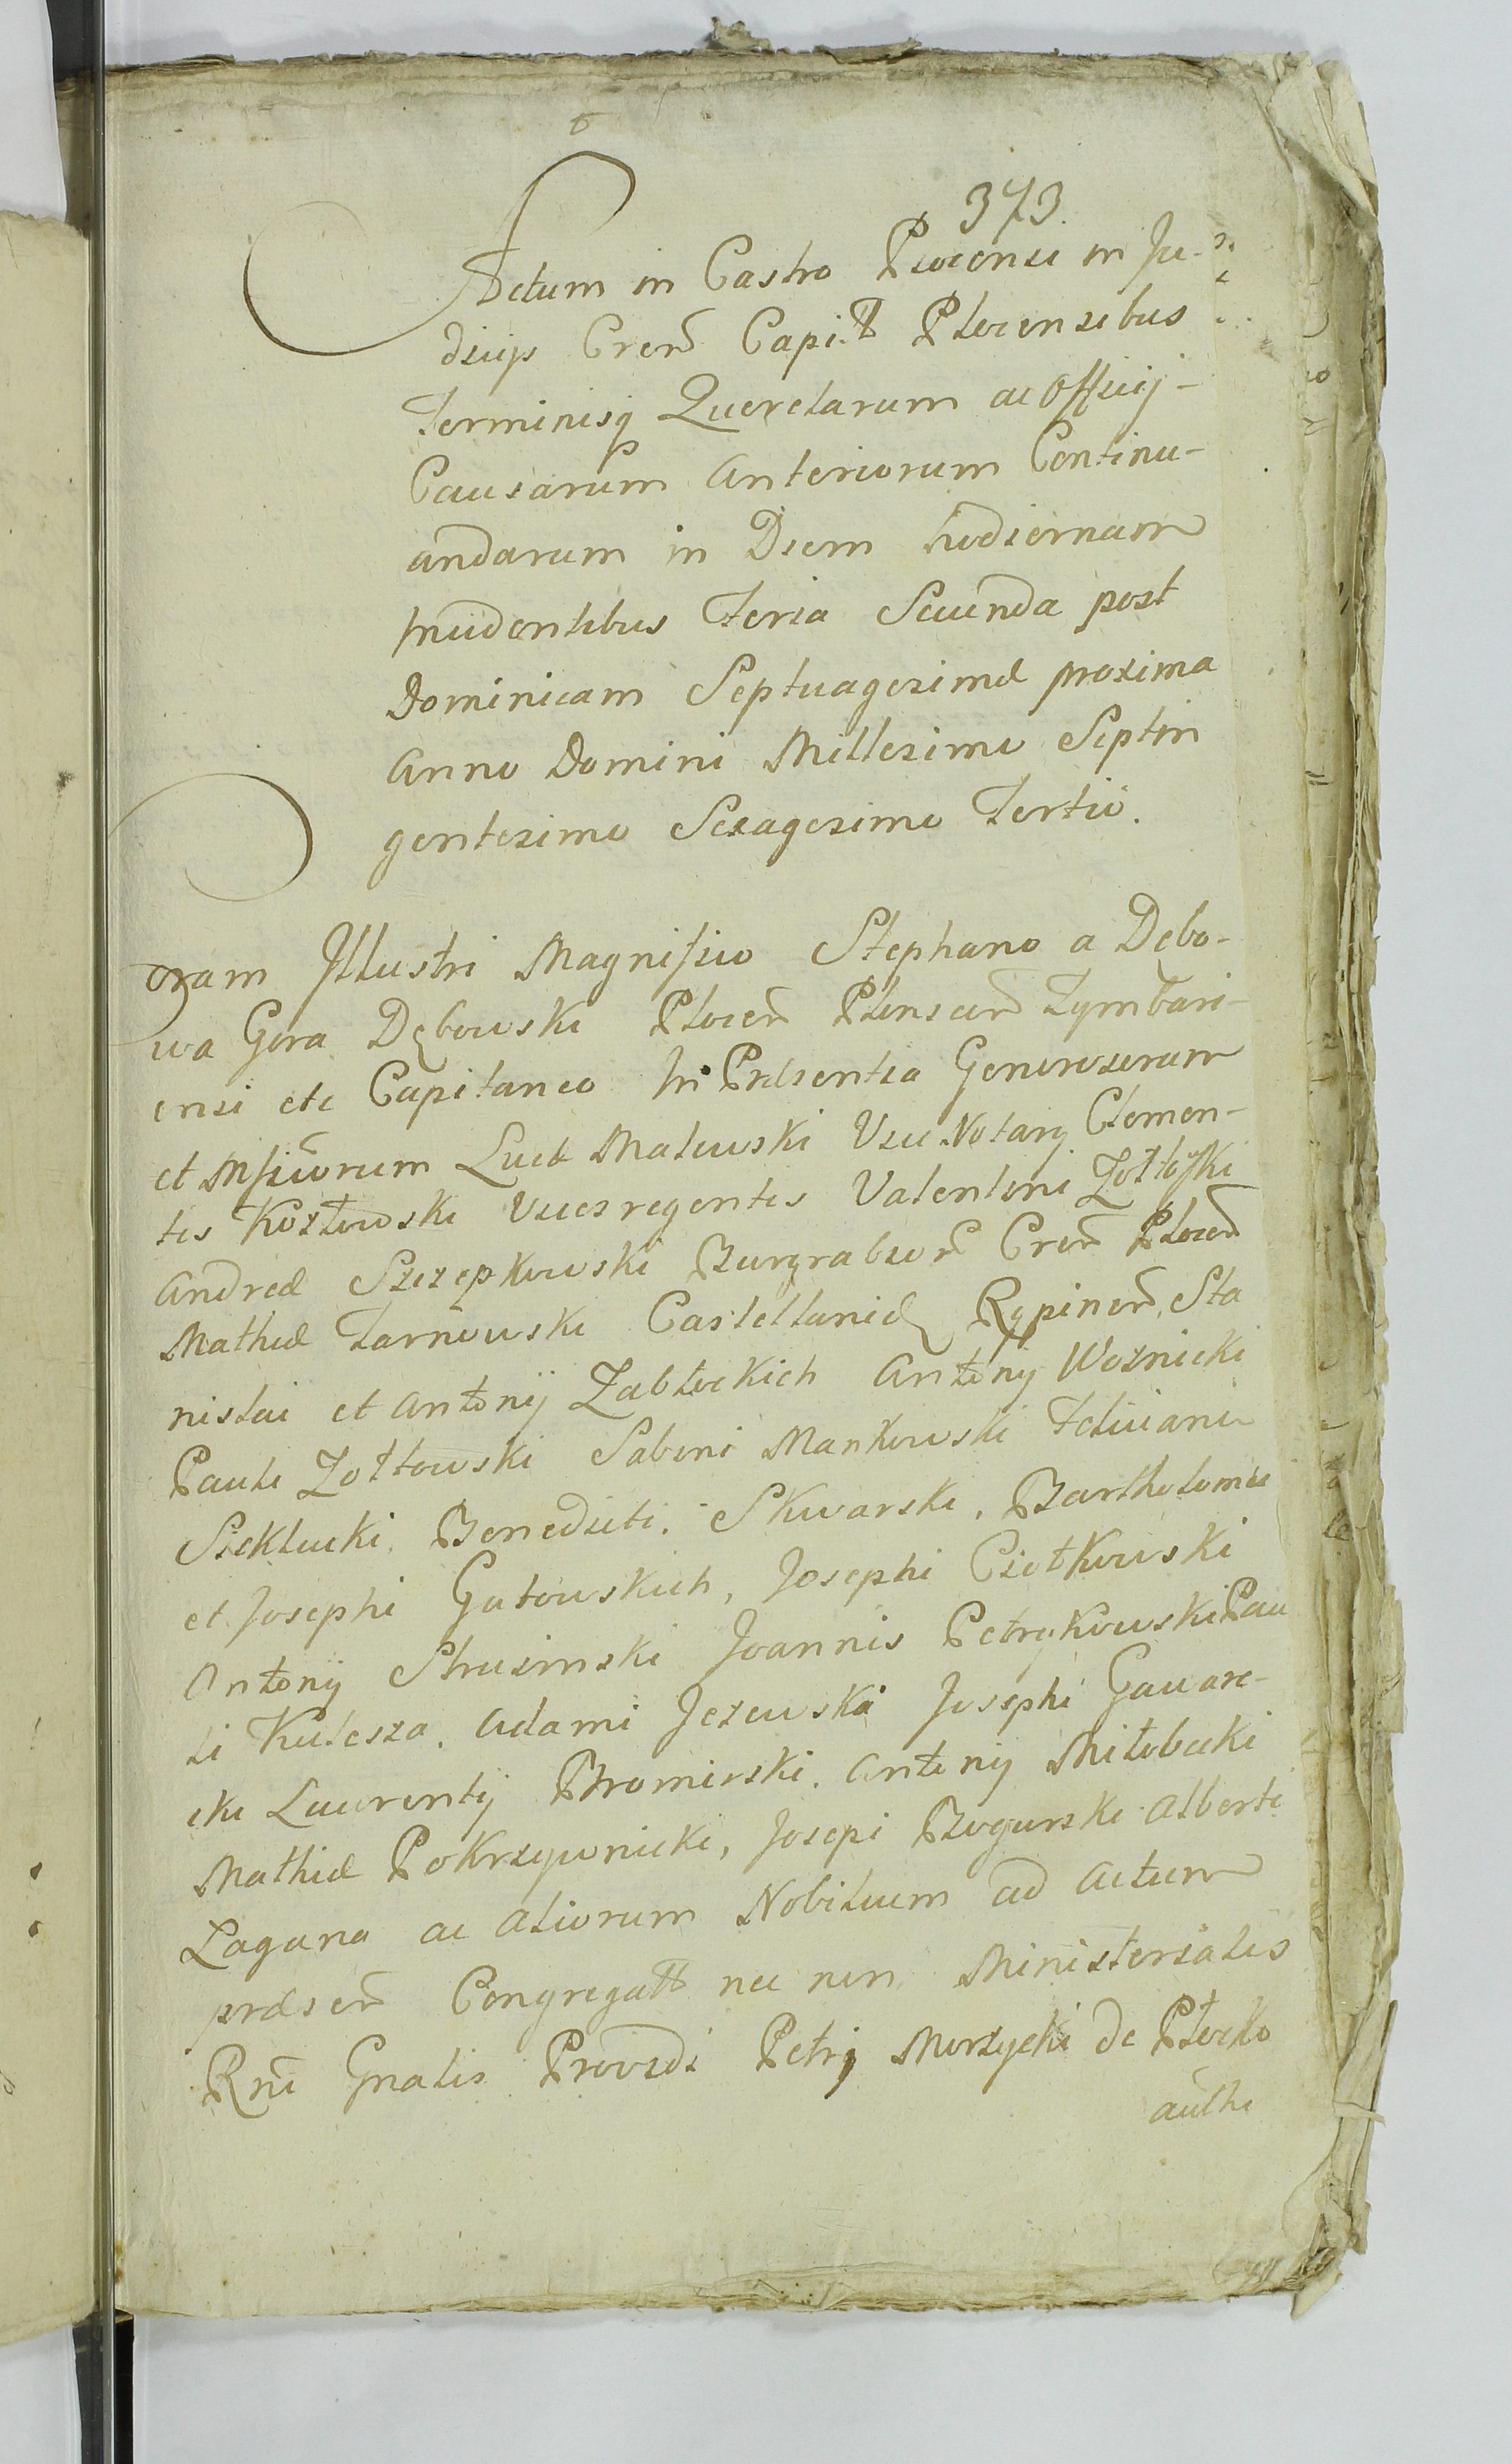 373.
Actum in Castro Plocensi in Ju-
dicijs Cren̄ Capitt Plocensibus
Terminisq Querelarum ac Officij-
Causarum Anteriorum Continu-
andarum in Diem hodiernam
incidentibus Feria Secunda post
Dominicam Septuagesimæ proxima
Anno Domini Millesimo Septin
gentesimo Sexagesimo Tertio.
Coram Illustri Magnifico Stephano a Debo-
wa Gora Dębowski Plocen̄ Plonscen̄ Tymbari-
ensi etc Capitaneo In Præsentia Generosorum
et Mficorum Lucæ Malewski Vice Notarij Clemen-
tis Kozłowski Vicesregentis Valentini Zołtoſki
Andreæ Szczepkowski Burgrabior̄ Cren̄ Plocen̄
Mathiæ Tarnowski Castellanidæ Rypinen̄, Sta
nislai et Antonij Zabłockich Antonij Woznicki
Pauli Zołtowski Sabini Mankowski Feliciani
Szeklucki, Benedicti, Skwarski, Bartholomæi
et Josephi Gutowskich, Josephi Ciołkowski
Antonij Strusinski Joannis Petrykowski Pau
li Kulesza, Adami Jezewski Josephi Gaware-
cki Laurentij Bromirski, Antonij Miłobecki
Mathiæ Pokrzywnicki, Josepi Bogurski Alberti
Laguna ac aliorum Nobilium ad Actum
præsen̄ Congregatt nec non Ministerialis
Rn̄i Gnalis Providi Petri Morzycki de Płocko
auth̄e